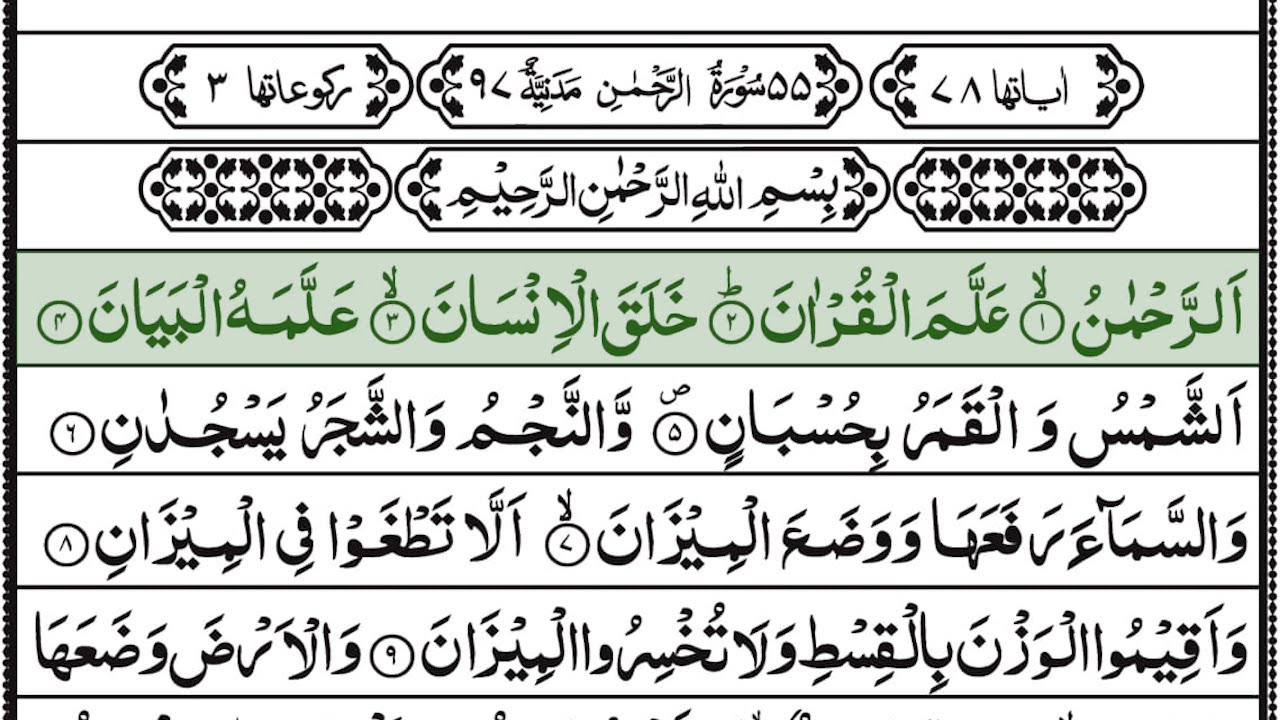 اٰیاتها ٧٨ ۵۵ سُوْرَةُ الرَّحْمٰنِ مَدَنِیَّةٌ ٩٧ رکوعاتها ٣
بِسْمِ اللهِ الرَّحْمٰنِ الرَّحِیْمِ
اَلرَّحْمٰنُ ۙ﴿۱﴾ عَلَّمَ الْقُرْاٰنَ ؕ﴿۲﴾ خَلَقَ الْاِنْسَانَ ۙ﴿۳﴾ عَلَّمَهُ الْبَیَانَ ﴿۴﴾
اَلشَّمْسُ وَ الْقَمَرُ بِحُسْبَانٍ ۪﴿۵﴾ وَّالنَّجْمُ وَالشَّجَرُ یَسْجُدٰنِ ﴿۶﴾
وَالسَّمَآءَ رَفَعَهَا وَوَضَعَ الْمِیْزَانَ ۙ﴿۷﴾ اَلَّا تَطْغَوْا فِی الْمِیْزَانِ ﴿۸﴾
وَاَقِیْمُوا الْوَزْنَ بِالْقِسْطِ وَلَا تُخْسِرُوا الْمِیْزَانَ ﴿۹﴾ وَالْاَرْضَ وَضَعَهَا